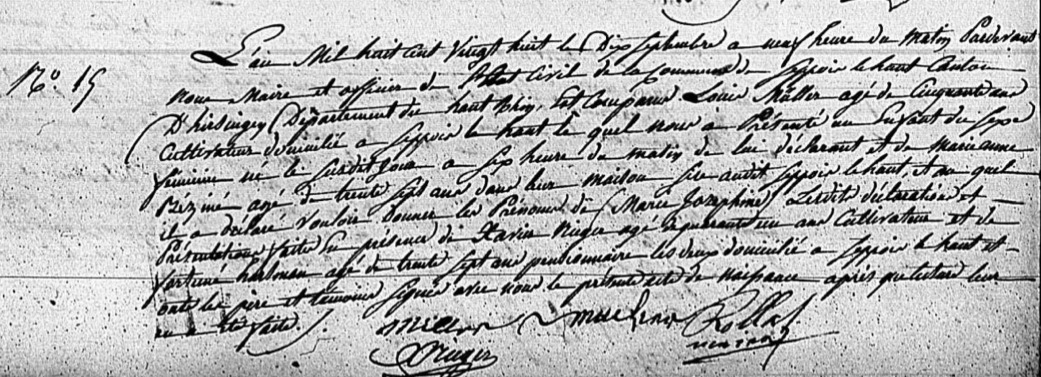 L'an Mil huit cent Vingt huit le Dix septembre a neuf heure du matin Pardevant
No. 15
nous Maire et officier de l'Etat Civil de la Commune de Seppois le haut Canton
D'hirsingen Département du haut Rhin, Est Comparu Louis Müller agé de Cinquante ans
Cultivateur domicilié a Seppois le haut le quel nous a Présenté un Enfant du Sexe
féminin né le Susdit jour a Six heure du matin de lui déclarant et de Marie anne
agé de trente Sept ans dans leur maison Sise audit Seppois le haut, et au quel
il a déclaré vouloir donner les Prénoms de Marie Josephine Lesdits déclaration et
Présentation faite en présence de Xavier agé quarante un ans Cultivateur et de
fortuné hartman agé de trente Sept ans pensionnaire les deux domicilié a Seppois le haut et
ont les père et témoins Signés avec nous le présent acte de naissance après que lecture leur
en a été faite.